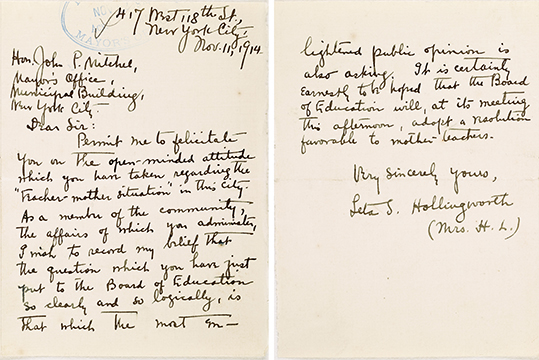 417 West 118th St.,
New York City,
Nov. 11, 1914.
Hon. John P. Mitchel,
Mayor's Office,
Municipal Building,
New York City
Dear Sir:
Permit me to felicitate
you on the open-minded attitude
which you have taken regarding the
"teacher-mother situation" in this City.
As a member of the community,
the affairs of which you administer,
I wish to record my belief that
the question which you have just
put to the Board of Education
so clearly and so logically, is
that which the most en-
lightened public opinion is
also asking. It is certainly
earnestly to be hoped that the Board
of Education will, at its meeting
this afternoon, adopt a resolution
favorable to mother-teachers.
Very sincerely yours,
Leta S. Hollingworth
(Mrs. H. L.)